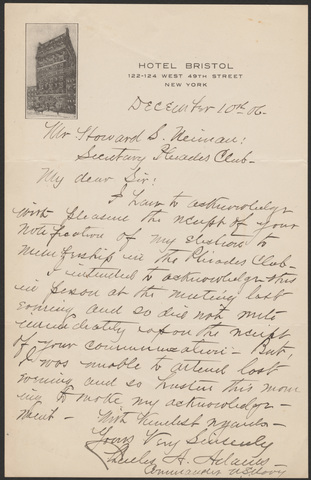 HOTEL BRISTOL
122-124 WEST 49TH STREET
NEW YORK
December 10th 06.
Mr Howard S. Neiman:
Secretary Pleiades Club-
My dear Sir:
I have to acknowledge
with pleasure the receipt of your
notification of my election to
membership in the Pleiades Club-
I intended to acknowledge this
in person at the meeting last
evening and so did not write
immediately upon the receipt
of your communication- But,
I was unable to attend last
evening and so hasten this morn
ing to make my acknowledge-
ment-
With kindest regards-
Yours Very Sincerely
Charles H. Adams-
Commander USNavy